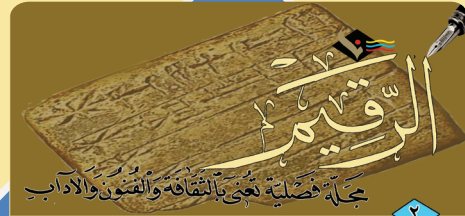 الرَّقِيم
مَجَلَّة فَصْلِيَّة تُعْنَى بِالثَّقَافَةِ وَالْفُنُونِ وَالآدَابِ
٢